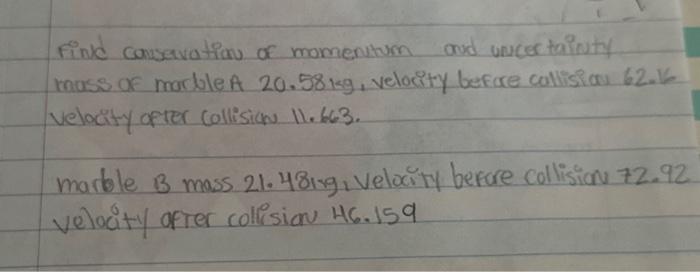 Find conservation of momentum and uncertainty
mass of marble A 20.58 kg, velocity before collision 62.16
velocity after collision 11.663.
marble B mass 21.48 kg, velocity before collision 72.92
velocity after collision 46.159